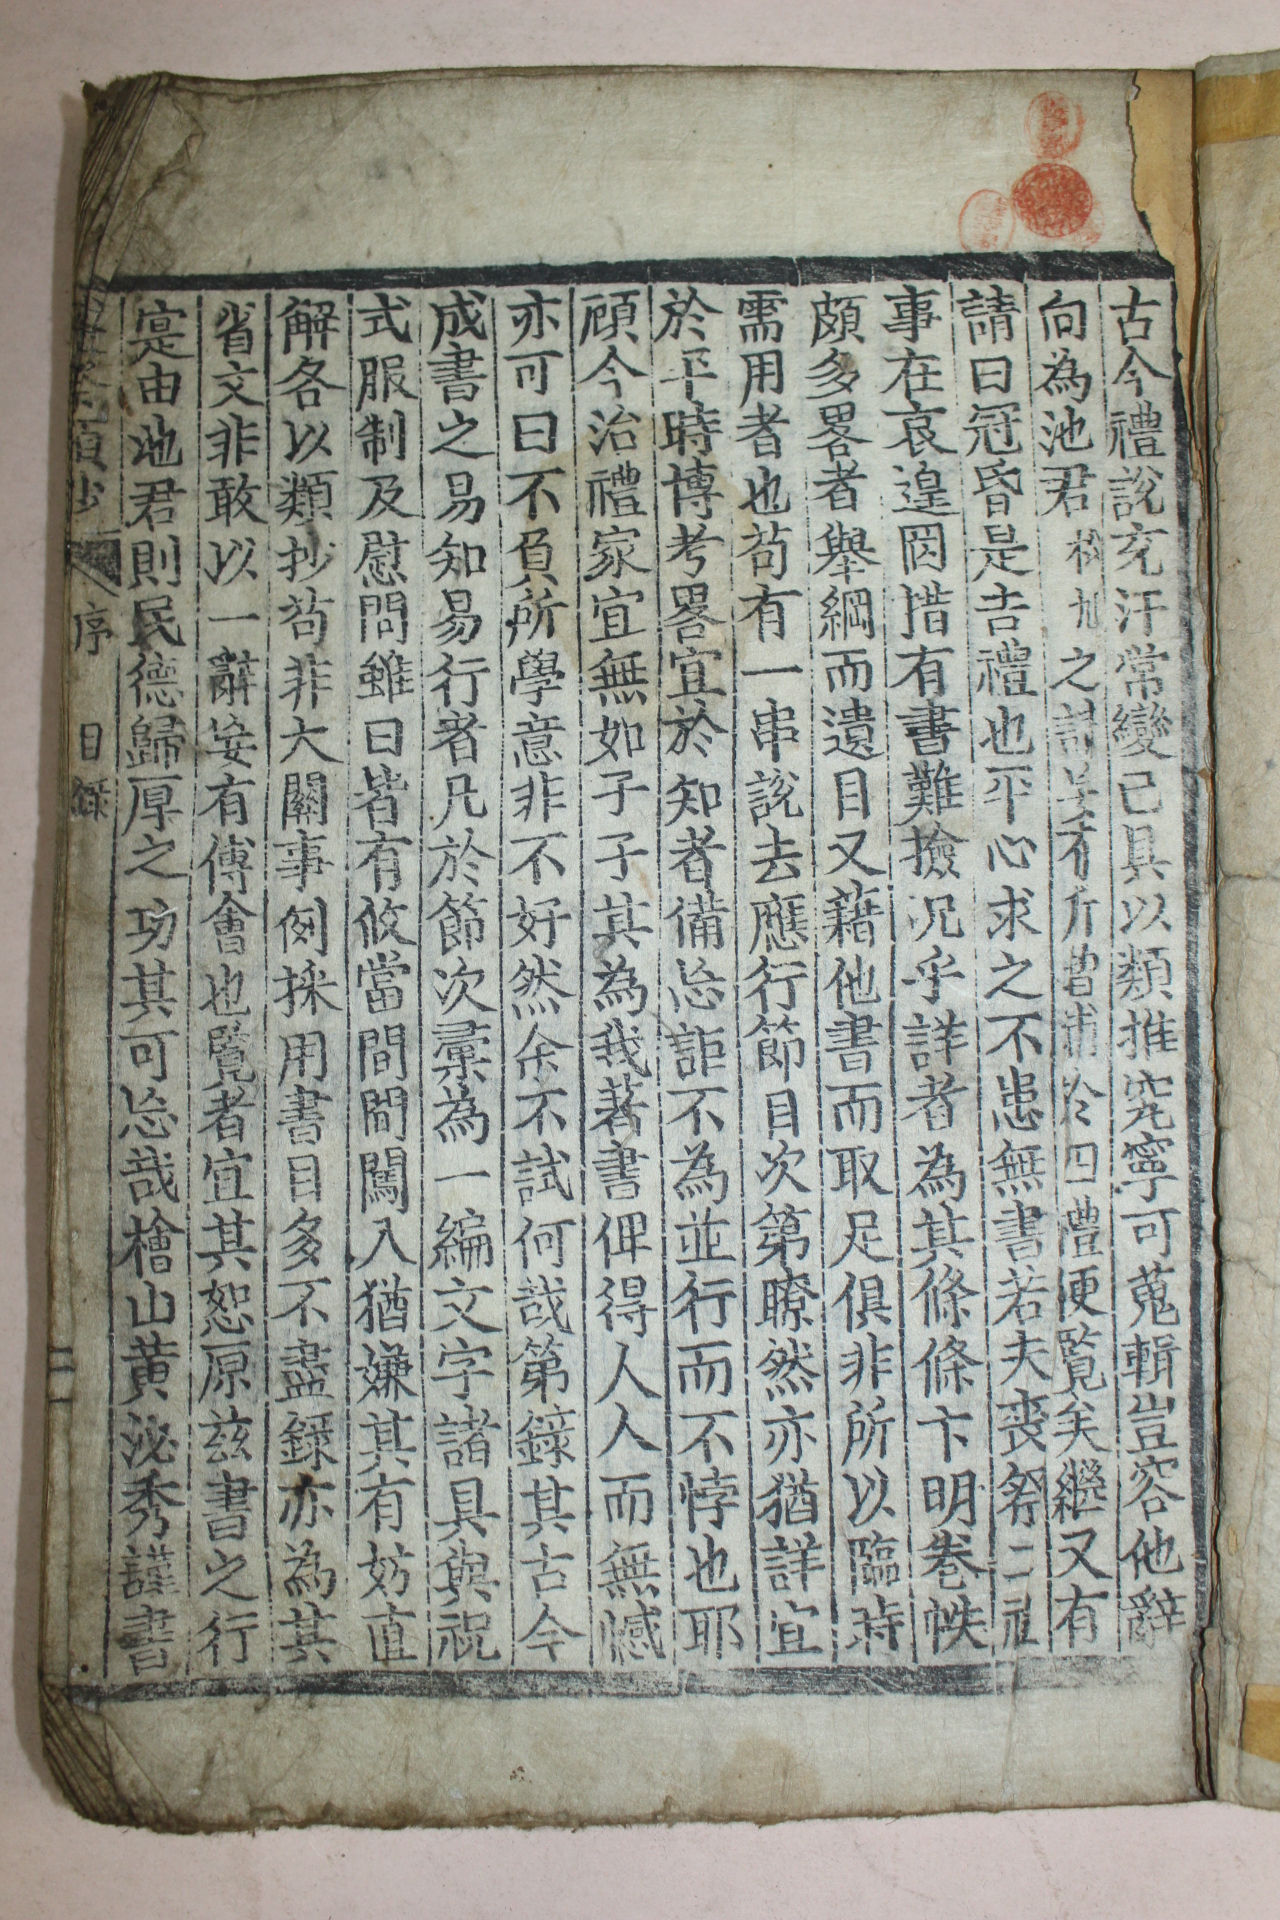 古今禮說充汗常變已具以類推究寧可蒐輯豈容他辭
向為池君松旭之請矣有所書補於四禮便覽矣繼又有
請曰冠昏是吉禮也平心求之不患無書若夫喪祭二禮
事在哀遑罔措有書難撿况乎詳者為其條條卞明巻帙
頗多畧者舉綱而遺目又藉他書而取足俱非所以臨時
需用者也苟有一串說去應行節目次第瞭然亦猶詳宜
於平時博考畧宜於知者備忘詎不為並行而不悖也耶
顧今治禮家宜無如子子其為我著書俾得人人而無憾
亦可曰不負所學意非不好然余不試何哉第錄其古今
成書之易知易行者凡於節次彙為一編文字諸具與祝
式服制及慰問雖曰皆有攸當間間闖入猶嫌其有妨直
解各以類抄苟非大關事例採用書目多不盡錄亦為其
省文非敢以一辭妄有傅會也覽者宜其恕原玆書之行
寔由池君則民德歸厚之功其可忘哉檜山黄泌秀謹書
序 目錄